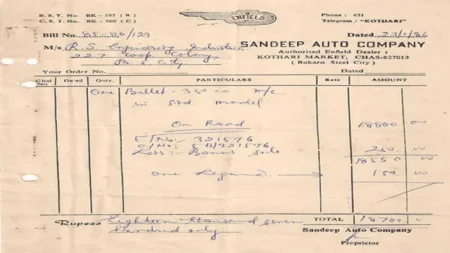 B.S.T. No. BK-197 ( R )
C.S.T. No. BK-200 ( C )
ENFIELD
Phone : 631
Telegram : "KOTHARI"
Bill No. 85-86/129
Dated 23/1/86
SANDEEP AUTO COMPANY
Authorised Enfield Dealer
KOTHARI MARKET, CHAS-827013
( Bokaro Steel City )
M/s R.S. Engineering Industries
227 Coop Colony
B.S. City
Your Order No.
Dated
Chal No. Dated Qnty. PARTICULARS Rate AMOUNT
One Bullet - 350 cc m/c
in Std. model
On Road 18800 00
E/No. 321576
C/No: 5 B/321576
Less :- Bonus Sale 250 00
18550 00
One Regn 150 00
Rupees Eighteen thousand seven TOTAL 18700 00
hundred only
Sandeep Auto Company
Proprietor